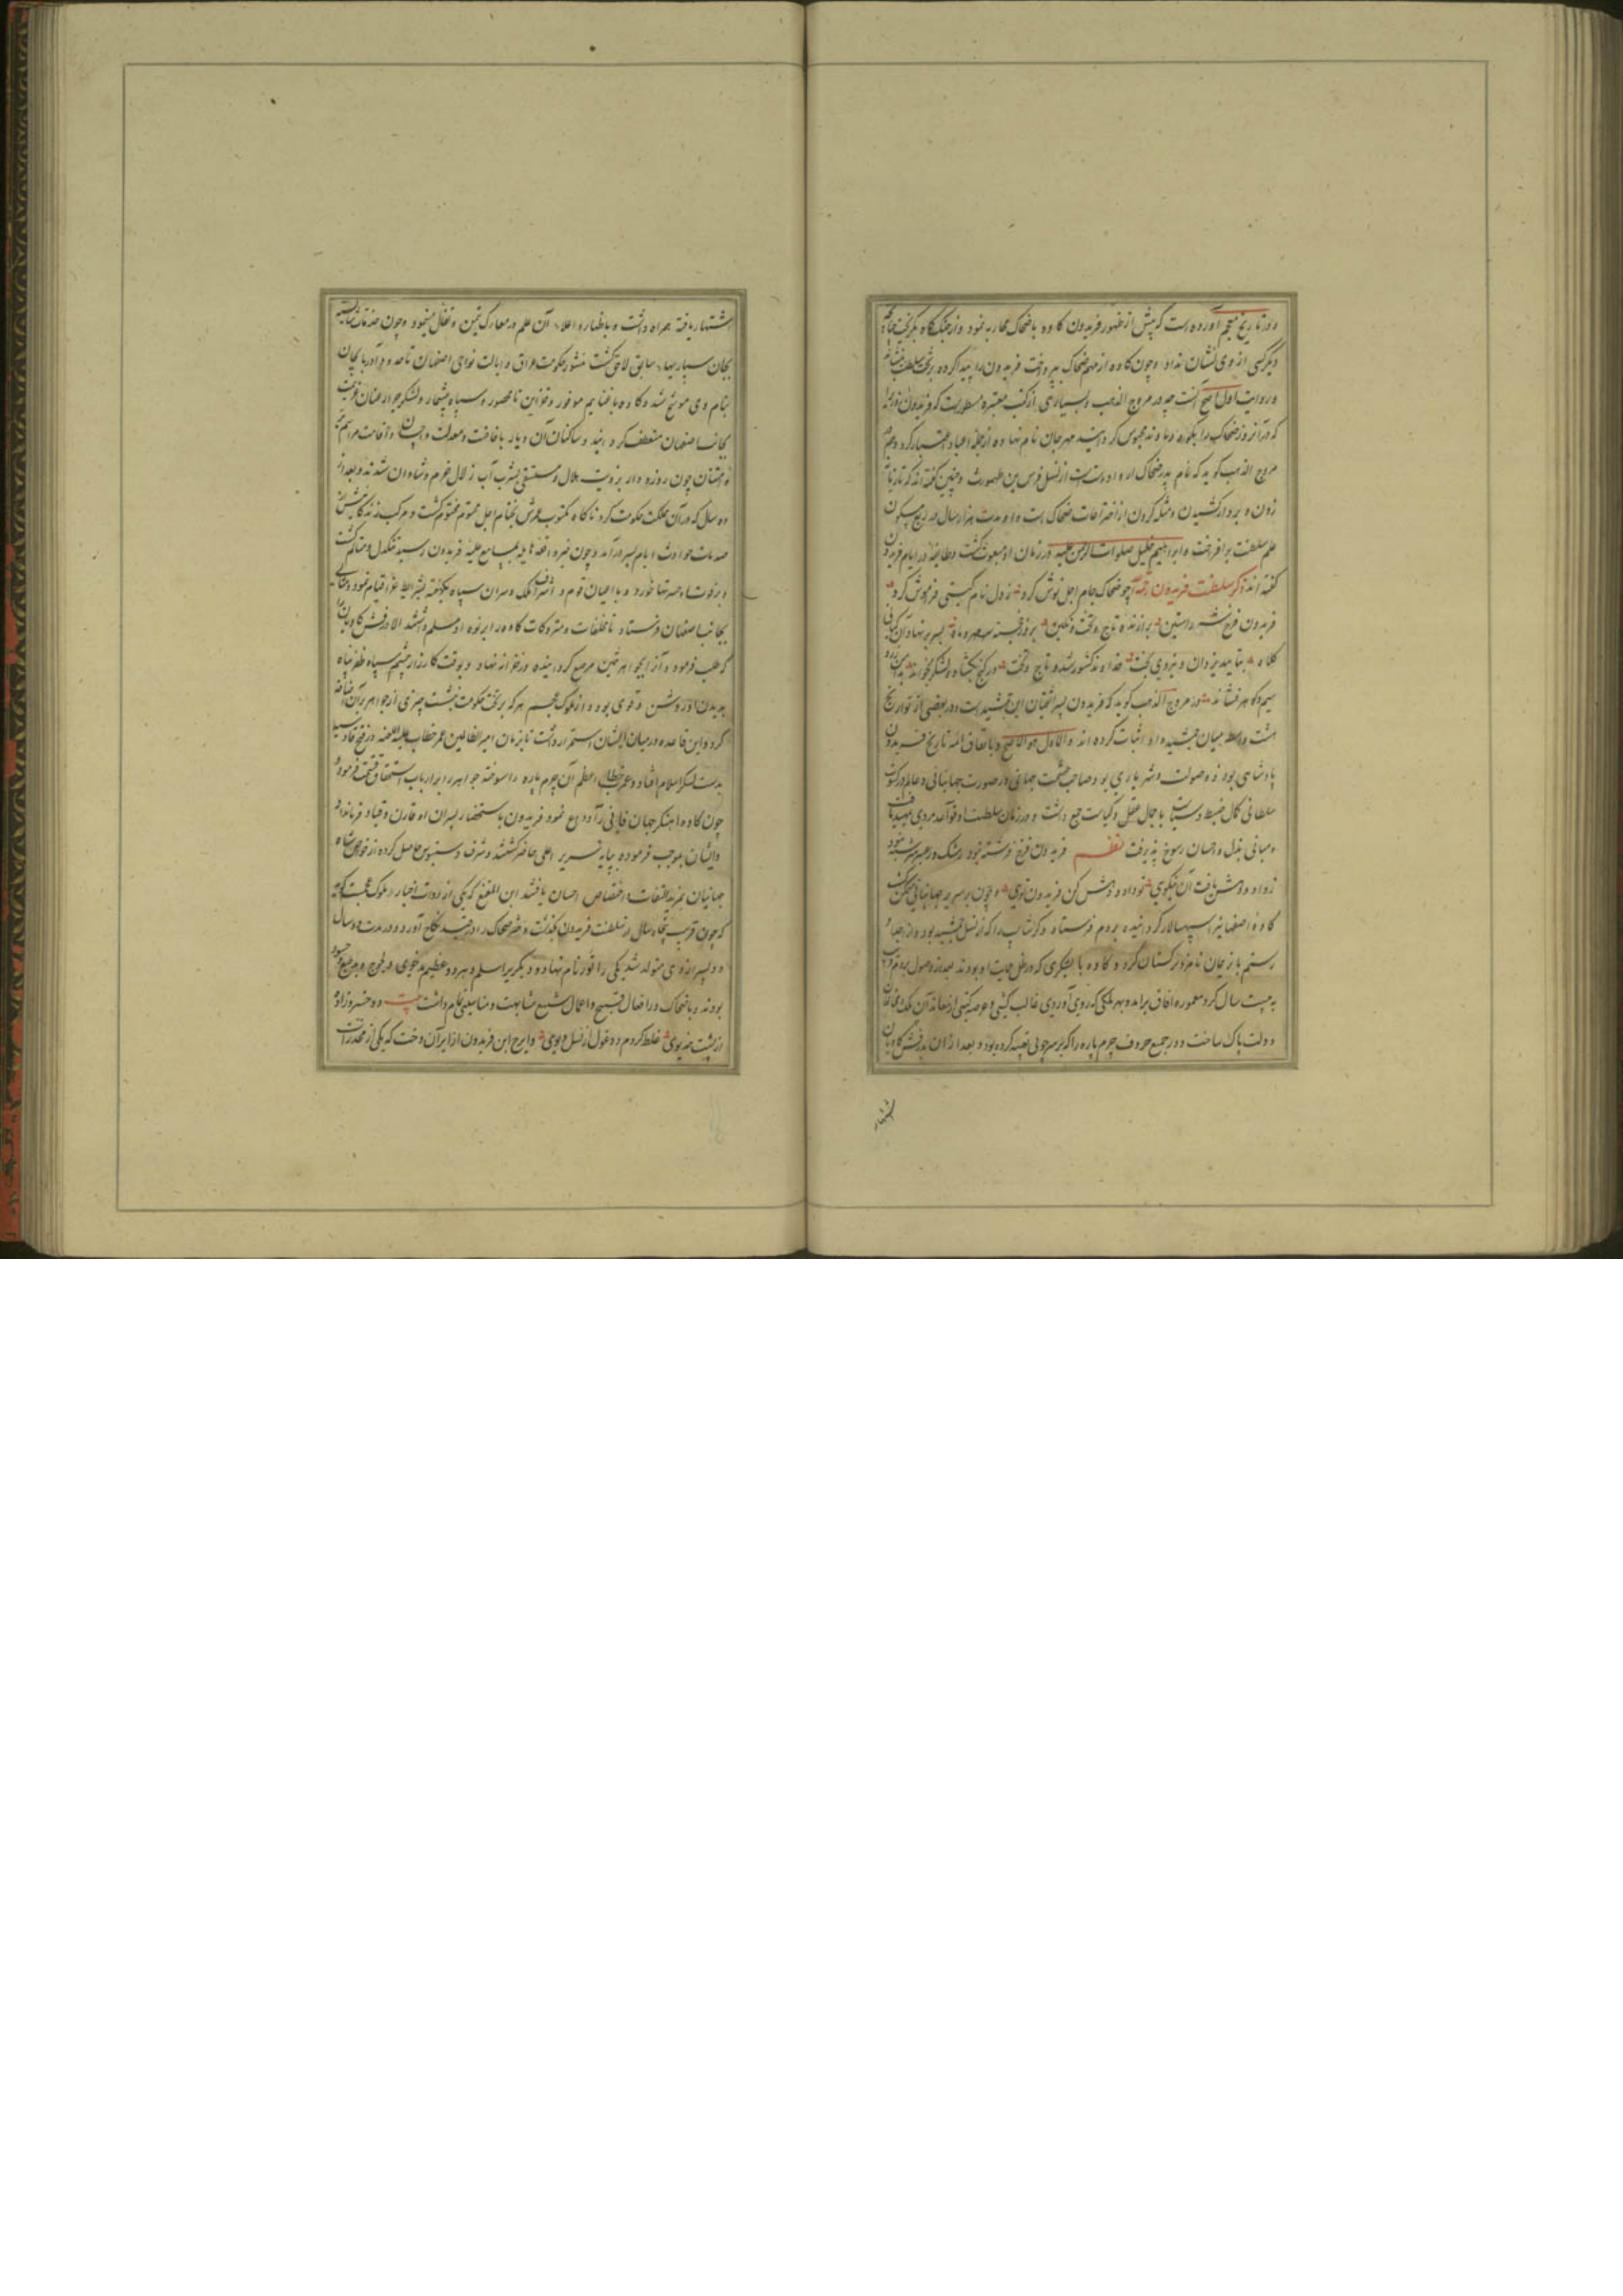 و در تاریخ معجم آورده است که پیش از ظهور فریدون کاوه با ضحاک محاربه نمود و از جنگ گاه بگریخت چنانکه
دیگر کسی از وی نشان نداد و چون کاوه از مهم ضحاک بپرداخت فریدون را پیدا کرده بر تخت سلطنت نشاند
و روایت اول اصح است چه در مروج الذهب و بسیاری از کتب معتبره مسطور است که فریدون
که در آن روز ضحاک را بکوه دماوند محبوس گردانید مهرجان نام نهاده از جمله اعیاد اعتبار کرد و هم
مروج الذهب گوید که نام پدر ضحاک از نسل فرس بن طهمورث و چنین گفته اند که تازیانه
زدن و بردار کشیدن و مثله کردن از اختراعات ضحاک است و او مدت هزار سال در ربع مسکون
علم سلطنت برافراخت و ابراهیم خلیل صلوات الرحمن علیه در زمان او مبعوث گشت و طایفه در ایام فریدون
گفته اند ذکر سلطنت فریدون چو ضحاک جام اجل نوش کرد ز دل نام گیتی فراموش کرد
فریدون فرخ برازنده تاج و تخت و نگین بروز خجسته سر مهر ماه بسر بر نهاد آن کیانی
کلاه بتایید یزدان و نیروی بخت خداوند کشور شد و تاج و تخت در گنج بگشاد و لشکر بخواند
سیم و گهر فشاند در مروج الذهب گوید که فریدون پسر اثفیان ابن جمشید است و در بعضی از تواریخ
هشت واسطه میان جمشید و او اثبات کرده اند و الاول هو الاصح و باتفاق ائمه تاریخ فریدون
پادشاهی بود و صولت و شهریاری بود صاحب حشمت جهانی در صورت جهانبانی و عالم در کسوت
سلطانی کمال ضبط و سیاست با جمال عقل و کیاست جمع داشت و در زمان سلطنت او قواعد مردی تمهید یافت
و مبانی بذل و احسان رسوخ پذیرفت نظم فریدون فرخ فرشته نبود ز مشک و ز عنبر سرشته نبود
ز داد و دهش یافت آن نیکوی تو داد و دهش کن فریدون توی و چون بر سریر جهانبانی متمکن گشت
کاوه اصفهانی را سپهسالار گردانیده بروم فرستاد و گرشاسپ را که از نسل جمشید بود و از اجداد
رستم باز بجانب ترکستان کرد و کاوه با لشکری که در ظل حمایت او بودند بعد از وصول بروم
به بیست سال گرد معموره آفاق برآمده بهر ملکی که روی آوردی غالب گشتی و عرصه گیتی از آن ملک مخالفان
دولت پاک ساخت و در جمیع حروف چرم پاره را که بر سر چوبی تعبیه کرده بود و بعد از آن بدرفش کاویان
اشتهار
اشتهار یافته همراه داشت و باظهار و اعلاء آن علم در معارک تیمن و تفال مینمود و چون خدمات شایسته
بجان سپاریهاء سابق لاحق گشت منشور حکومت عراق و ایالت نواحی اصفهان تا حدود آذربایجان
بنام وی موشح شد و کاوه با غنایم موفور و خزاین نامحصور و سپاه بیشمار و لشکر جرار عنان عزیمت
بجانب اصفهان منعطف گردانید و ساکنان آن دیار بافاضت معدلت و احسان و اقامت مراسم
و امتنان چون روزه دار برویت هلال و مستسقی بشرب آب زلال خرم و شادان شدند و بعد از
ده سال که در آن مملکت حکومت کرد ناگاه مکتوب عمرش بختام اجل محتوم مختوم گشت و مرکب زندگانیش از
صدمات حوادث ایام بسر درآمد و چون خبر واقعه هایله بمسامع علیه فریدون رسید تنگدل و متالم گشت
و بر فوت او حسرتها خورد و با اعیان قوم و اشراف ملک و سران سپاه یکهفته بشرایط عزا قیام نمود و مثالی
بجانب اصفهان فرستاد تا مخلفات و متروکات کاوه را بر نوه او مسلم داشتند الا درفش کاویان را
که طلب فرمود و آنرا بجواهر ثمین مرصع گردانیده در خزانه نهاد و بوقت کارزار چشم سپاه ظفر پناه
بدیدن او روشن و قوی بود و از ملوک عجم هر که بر تخت حکومت نشست چیزی از جواهر بر آن اضافه
کرد و این قاعده در میان ایشان استمرار داشت تا بزمان عمر خطاب در فتح قادسیه
بدست لشکر اسلام افتاد و عمر خطاب اعظم آن چرم پاره را سوخته جواهر را بر ارباب استحقاق قسمت فرمود
چون کاوه آهنگر جهان فانی را وداع نمود فریدون باستحضار پسران او قارن و قباد فرمان داد
و ایشان بموجب فرموده بپایه سریر اعلی حاضر گشتند و شرف دستبوس حاصل کرده از خواص شاه
جهانیان بمزید التفات و اختصاص احسان یافتند ابن المقفع که یکی از روات اخبار ملوک عجم است گوید
که چون قریب پنجاه سال از سلطنت فریدون بگذشت دختر ضحاک را در قید نکاح آورد و در مدت ده سال
دو پسر از وی متولد شد یکی را تور نام نهاد و دیگری را سلم و هر دو عظیم بدخوی
بودند و با ضحاک در افعال قبیح و اعمال شنیع مشابهت و مناسبتی تمام داشت بیت دو خسروزاده
از پشت خدیوی غلط کردم دو غول از نسل دیوی و ایرج ابن فریدون از ایران دخت که یکی از مخدرات